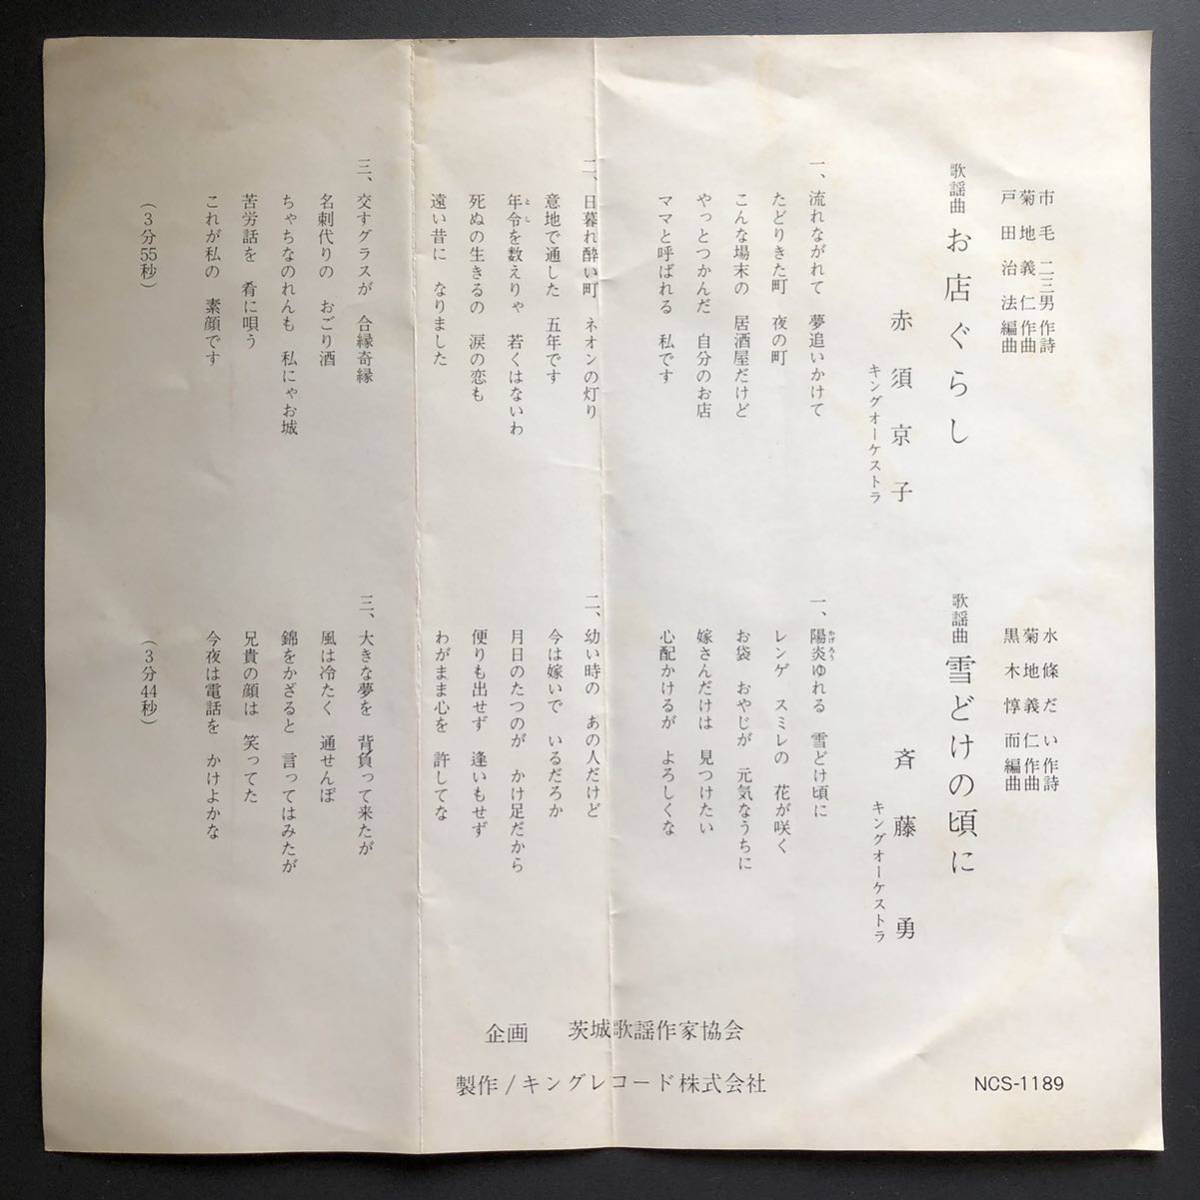 市毛二三男作詩
菊地義仁作曲
戸田治法編曲
歌謡曲 お店ぐらし
赤須京子
キングオーケストラ
一、流れながれて 夢追いかけて
たどりきた町 夜の町
こんな場末の 居酒屋だけど
やっとつかんだ 自分のお店
ママと呼ばれる 私です
二、日暮れ酔い町 ネオンの灯り
意地で通した 五年です
年令を数えりゃ 若くはないわ
とし
死ぬの生きるの 涙の恋も
遠い昔に なりました
三、交すグラスが 合縁奇縁
名刺代りの おごり酒
ちゃちなのれんも 私にゃお城
苦労話を 肴に唄う
これが私の 素顔です
(3分55秒)
水條だい作詩
菊地義仁作曲
黒木惇而編曲
歌謡曲 雪どけの頃に
斉藤勇
キングオーケストラ
一、陽炎ゆれる 雪どけ頃に
かげろう
レンゲ スミレの 花が咲く
お袋 おやじが 元気なうちに
嫁さんだけは 見つけたい
心配かけるが よろしくな
二、幼い時の あの人だけど
今は嫁いで いるだろか
月日のたつのが かけ足だから
便りも出せず 逢いもせず
わがまま心を 許してな
三、大きな夢を 背負って来たが
風は冷たく 通せんぼ
錦をかざると 言ってはみたが
兄貴の顔は 笑ってた
今夜は電話を かけよかな
(3分44秒)
企画 茨城歌謡作家協会
製作/キングレコード株式会社
NCS-1189